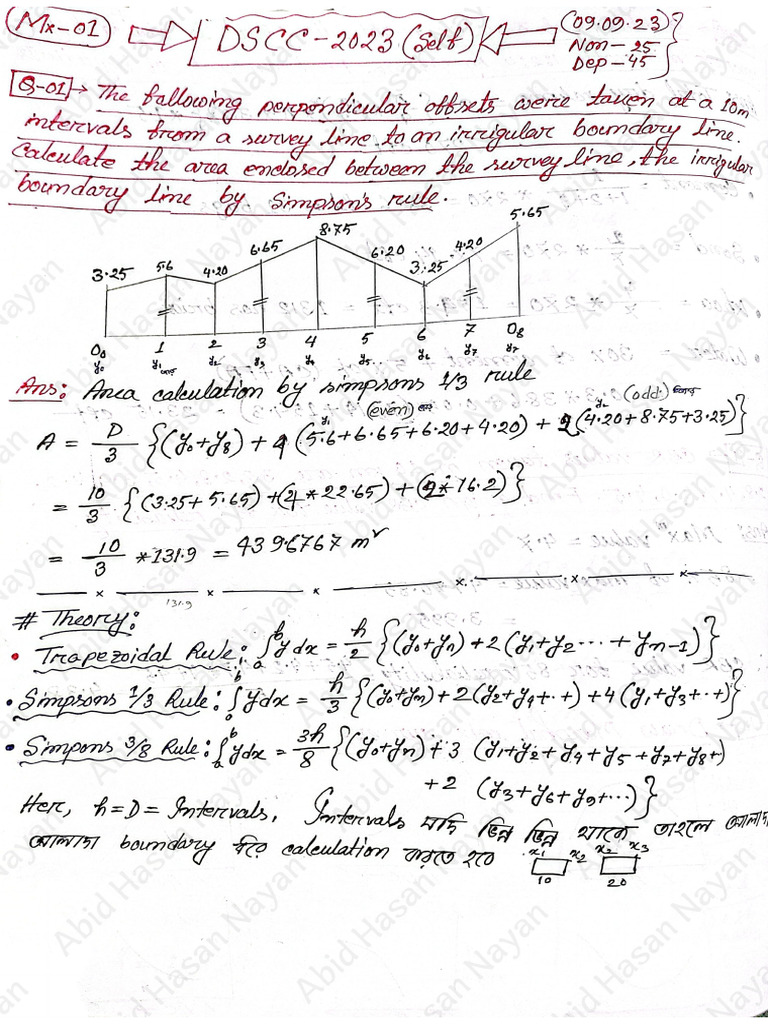 Mx-01
DSCC-2023 (Self)
(09.09.23)
Non-25
Dep-45
Q-01 → The following perpendicular offsets were taken at a 10m
intervals from a survey line to an irrigular boundary line.
Calculate the area enclosed between the survey line, the irrigular
boundary line by Simpson's rule.
3.25 5.6 4.20 6.65 8.75 6.20 3.25 4.20 5.65
O₀ 1 2 3 4 5 6 7 O₈
y₀ y₁ y₂ y₃ y₄ y₅ y₆ y₇ y₇
Ans: Area calculation by simpsons 1/3 rule
(even) (odd)
A = D/3 {(y₀+y₈) + 4(5.6+6.65+6.20+4.20) + 2(4.20+8.75+3.25)}
= 10/3 {(3.25+5.65)+(4*22.65)+(2*16.2)}
= 10/3 *131.9 = 439.6767 m²
131.9
# Theory:
• Trapezoidal Rule: ∫ₐᵇ y dx = h/2 {(y₀+yₙ)+2(y₁+y₂...+yₙ₋₁)}
• Simpsons 1/3 Rule: ∫ₐᵇ ydx = h/3 {(y₀+yₙ)+2(y₂+y₄+..)+4(y₁+y₃+..)}
• Simpons 3/8 Rule: ∫ₐᵇ ydx = 3h/8 {(y₀+yₙ)+3 (y₁+y₂+y₄+y₅+y₇+y₈+)
+2 (y₃+y₆+y₉+...)}
Her, h=D= Intervals, Intervals যদি ভিন্ন ভিন্ন থাকে তাহলে আলাদা
আলাদা boundary ধরে calculation করতে হবে x₁ x₂ x₂ x₃
10 20
Abid Hasan Nayan